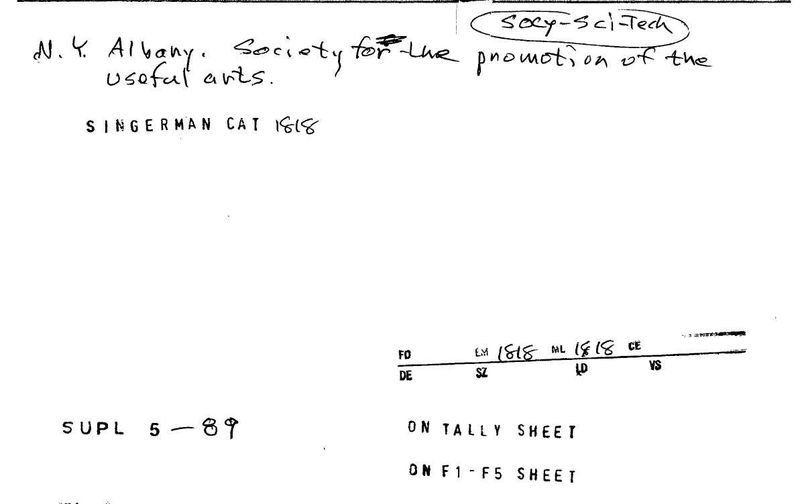 Socy-Sci-Tech
N.Y. Albany. Society for the promotion of the
useful arts.
SINGERMAN CAT 1818
FD EM 1818 ML 1818 CE
DE SZ LD VS
SUPL 5-89
ON TALLY SHEET
ON F1-F5 SHEET